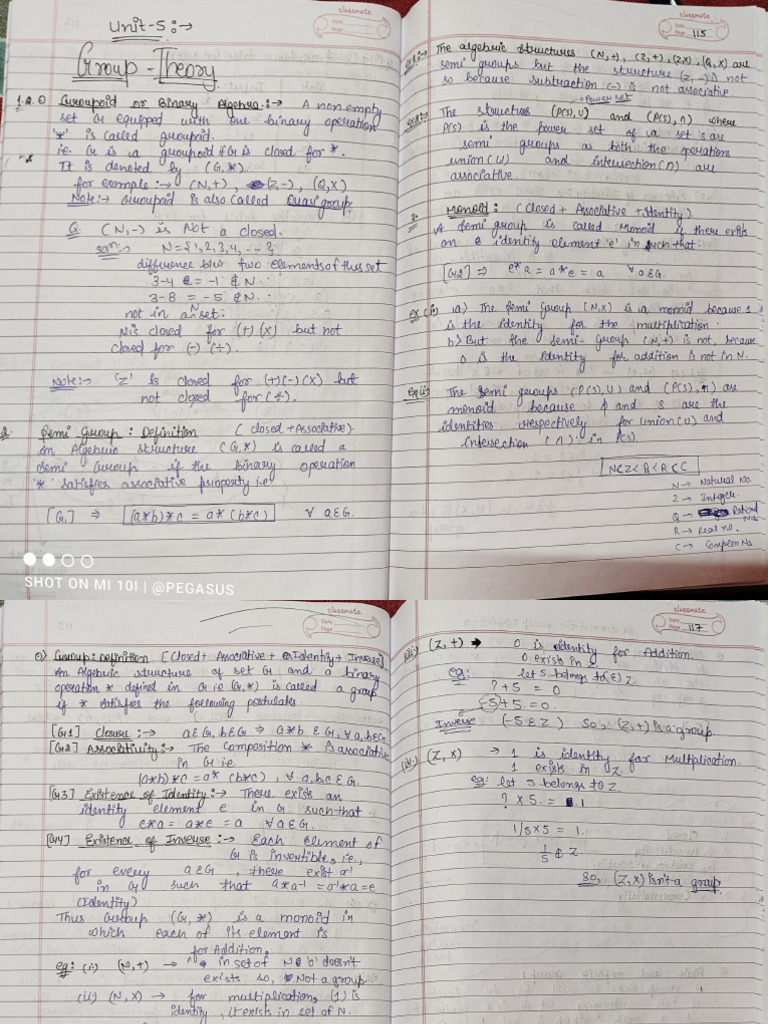 Unit-5:→
Group-Theory
1.2. 0) Groupoid or Binary Algebra:→ A non empty
set G equipped with one binary operation
'*' is called groupoid.
i.e. G is a groupoid if G is closed for *.
It is denoted by (G,*).
for example:→ (N,+), (Z,-), (Q,X)
Note:→ Groupoid is also called Quasigroup
Q. (N,-) is Not a closed.
N={1,2,3,4,---}
difference b/w two elements of this set
3-4 = -1 ∉ N
3-8 = -5 ∉ N.
not in a set.
N
N is closed for (+) (X) but not
closed for (-) (÷).
Note:→ 'Z' is closed for (+)(-)(X) but
not closed for (÷).
2. Semi Group: Definition (closed + Associative)
An Algebric structure (G,*) is called a
Semi Group if the binary operation
'*' satisfies associative property i.e
[G1] ⇒ (a*b)*c = a*(b*c) ∀ a∈G.
SHOT ON MI 10I | @PEGASUS
classmate
Date
Page 115
The algebric structures (N,+), (Z,+), (Z,X), (Q,X) are
semi groups but the structure (Z,-) is not
so because subtraction (-) is not associative.
→Power set
The structures (P(S),U) and (P(S),∩) where
P(S) is the power set of a set S are
semi groups as both the operations
union (U) and intersection (∩) are
associative.
3. Monoid: (Closed + Associative + Identity)
A Semi group is called Monoid if there exists
an e identity element 'e' in such that
[G2] ⇒ e*a = a*e = a ∀ a∈G.
ex(i) a) The Semi Group (N,X) is a monoid because 1
is the identity for the multiplication.
b) But the semi-Group (N,+) is not, because
0 is the identity for addition is not in N.
The semi groups (P(S),U) and (P(S),∩) are
monoid because ϕ and S are the
identities respectively for union (U) and
intersection (∩) in P(S)
N<Z<Q<R<C
N → Natural No.
Z → Integer.
Q →
R → Real no.
C → Complex No
classmate
Date
Page
Group: Definition [Closed + Associative + Identity + Inverse]
An Algebric structure of set G and a binary
operation * defined in G i.e (G,*) is called a group
if * satisfies the following postulates
[G1] Closure:→ a∈G, b∈G ⇒ a*b ∈ G, ∀ a,b∈G
[G2] Associativity:→ The Composition * is associative
in G i.e.
(a*b)*c = a* (b*c), ∀ a,b,c ∈ G.
[G3] Existence of Identity:→ There exists an
identity element e in G such that
e*a = a*e = a ∀ a∈G.
[G4] Existence of Inverse:→ Each element of
G is invertible, i.e.,
for every a∈G, there exist a⁻¹
in G such that a*a⁻¹ = a⁻¹*a = e
(Identity)
Thus Group (G,*) is a monoid in
which each of its element is
for Addition,
eg: (i) (N,+) → in set of N '0' doesn't
exists so, Not a group.
(ii) (N,X) → for multiplication, (1) is
identity, it exists in set of N.
classmate
Date
Page 117
(iii) (Z,+) → 0 is identity for Addition.
0 exists in Z
eg: let 5 belongs to (∈) Z
? + 5 = 0
-5 + 5 = 0.
Inverse (-5∈Z) So, (Z,+) is a group.
(iv.) (Z,X) → 1 is identity for Multiplication.
1 exists in Z
eg: let 5 belongs to Z
? X 5 = 1
1/5 X 5 = 1.
1/5 ∉ Z
So, (Z,X) isn't a group.